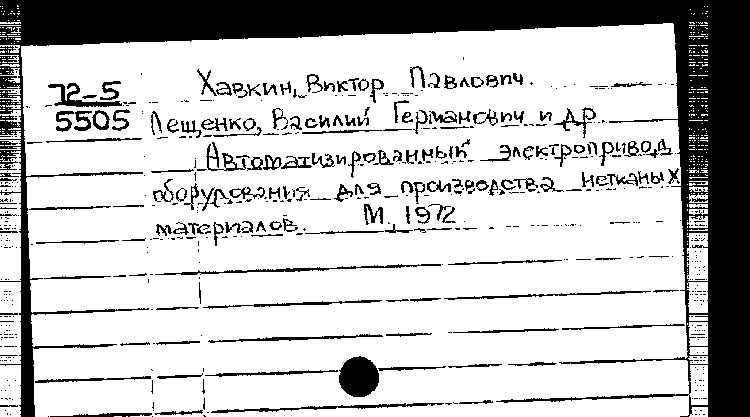 72-5
5505
Хавкин, Виктор Павлович.
Лещенко, Василий Германович и др.
Автоматизированный электропривод
оборудования для производства нетканых
материалов. М., 1972